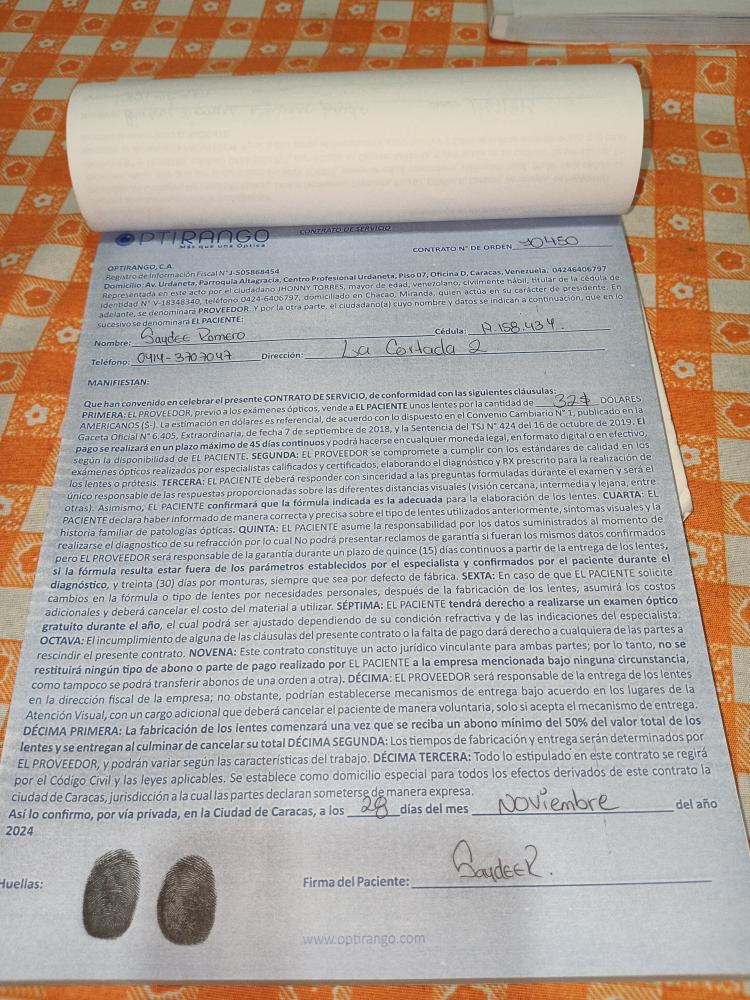 OPTIRANGO
Más que una Óptica
CONTRATO DE SERVICIO
CONTRATO N° DE ORDEN 40450
OPTIRANGO, C.A.
Registro de Información Fiscal N°J-505868454
Domicilio: Av. Urdaneta, Parroquia Altagracia, Centro Profesional Urdaneta, Piso 07, Oficina D, Caracas, Venezuela. 04246406797
Representada en este acto por el ciudadano JHONNY TORRES, mayor de edad, venezolano, civilmente hábil, titular de la cédula de
identidad N° V-18348340, teléfono 0424-6406797, domiciliado en Chacao, Miranda, quien actúa en su carácter de presidente. En
adelante, se denominará PROVEEDOR. Y por la otra parte, el ciudadano(a) cuyo nombre y datos se indican a continuación, que en lo
sucesivo se denominará EL PACIENTE:
Nombre: Saydee Romero Cédula: 17.158.434.
Teléfono: 0414-3707047 Dirección: La Cortada 2
MANIFIESTAN:
Que han convenido en celebrar el presente CONTRATO DE SERVICIO, de conformidad con las siguientes cláusulas:
PRIMERA: EL PROVEEDOR, previo a los exámenes ópticos, vende a EL PACIENTE unos lentes por la cantidad de 32$ DÓLARES
AMERICANOS ($-). La estimación en dólares es referencial, de acuerdo con lo dispuesto en el Convenio Cambiario N° 1, publicado en la
Gaceta Oficial N° 6.405, Extraordinaria, de fecha 7 de septiembre de 2018, y la Sentencia del TSJ N° 424 del 16 de octubre de 2019. El
pago se realizará en un plazo máximo de 45 días continuos y podrá hacerse en cualquier moneda legal, en formato digital o en efectivo,
según la disponibilidad de EL PACIENTE. SEGUNDA: EL PROVEEDOR se compromete a cumplir con los estándares de calidad en los
exámenes ópticos realizados por especialistas calificados y certificados, elaborando el diagnóstico y RX prescrito para la realización de
los lentes o prótesis. TERCERA: EL PACIENTE deberá responder con sinceridad a las preguntas formuladas durante el examen y será el
único responsable de las respuestas proporcionadas sobre las diferentes distancias visuales (visión cercana, intermedia y lejana, entre
otras). Asimismo, EL PACIENTE confirmará que la fórmula indicada es la adecuada para la elaboración de los lentes. CUARTA: EL
PACIENTE declara haber informado de manera correcta y precisa sobre el tipo de lentes utilizados anteriormente, síntomas visuales y la
historia familiar de patologías ópticas. QUINTA: EL PACIENTE asume la responsabilidad por los datos suministrados al momento de
realizarse el diagnostico de su refracción por lo cual No podrá presentar reclamos de garantía si fueran los mismos datos confirmados
pero EL PROVEEDOR será responsable de la garantía durante un plazo de quince (15) días continuos a partir de la entrega de los lentes,
si la fórmula resulta estar fuera de los parámetros establecidos por el especialista y confirmados por el paciente durante el
diagnóstico, y treinta (30) días por monturas, siempre que sea por defecto de fábrica. SEXTA: En caso de que EL PACIENTE solicite
cambios en la fórmula o tipo de lentes por necesidades personales, después de la fabricación de los lentes, asumirá los costos
adicionales y deberá cancelar el costo del material a utilizar. SÉPTIMA: EL PACIENTE tendrá derecho a realizarse un examen óptico
gratuito durante el año, el cual podrá ser ajustado dependiendo de su condición refractiva y de las indicaciones del especialista.
OCTAVA: El incumplimiento de alguna de las cláusulas del presente contrato o la falta de pago dará derecho a cualquiera de las partes a
rescindir el presente contrato. NOVENA: Este contrato constituye un acto jurídico vinculante para ambas partes; por lo tanto, no se
restituirá ningún tipo de abono o parte de pago realizado por EL PACIENTE a la empresa mencionada bajo ninguna circunstancia,
como tampoco se podrá transferir abonos de una orden a otra). DÉCIMA: EL PROVEEDOR será responsable de la entrega de los lentes
en la dirección fiscal de la empresa; no obstante, podrían establecerse mecanismos de entrega bajo acuerdo en los lugares de la
Atención Visual, con un cargo adicional que deberá cancelar el paciente de manera voluntaria, solo si acepta el mecanismo de entrega.
DÉCIMA PRIMERA: La fabricación de los lentes comenzará una vez que se reciba un abono mínimo del 50% del valor total de los
lentes y se entregan al culminar de cancelar su total DÉCIMA SEGUNDA: Los tiempos de fabricación y entrega serán determinados por
EL PROVEEDOR, y podrán variar según las características del trabajo. DÉCIMA TERCERA: Todo lo estipulado en este contrato se regirá
por el Código Civil y las leyes aplicables. Se establece como domicilio especial para todos los efectos derivados de este contrato la
ciudad de Caracas, jurisdicción a la cual las partes declaran someterse de manera expresa.
Así lo confirmo, por vía privada, en la Ciudad de Caracas, a los 28 días del mes Noviembre del año
2024
Huellas: Firma del Paciente: SaydeeR.
www.optirango.com